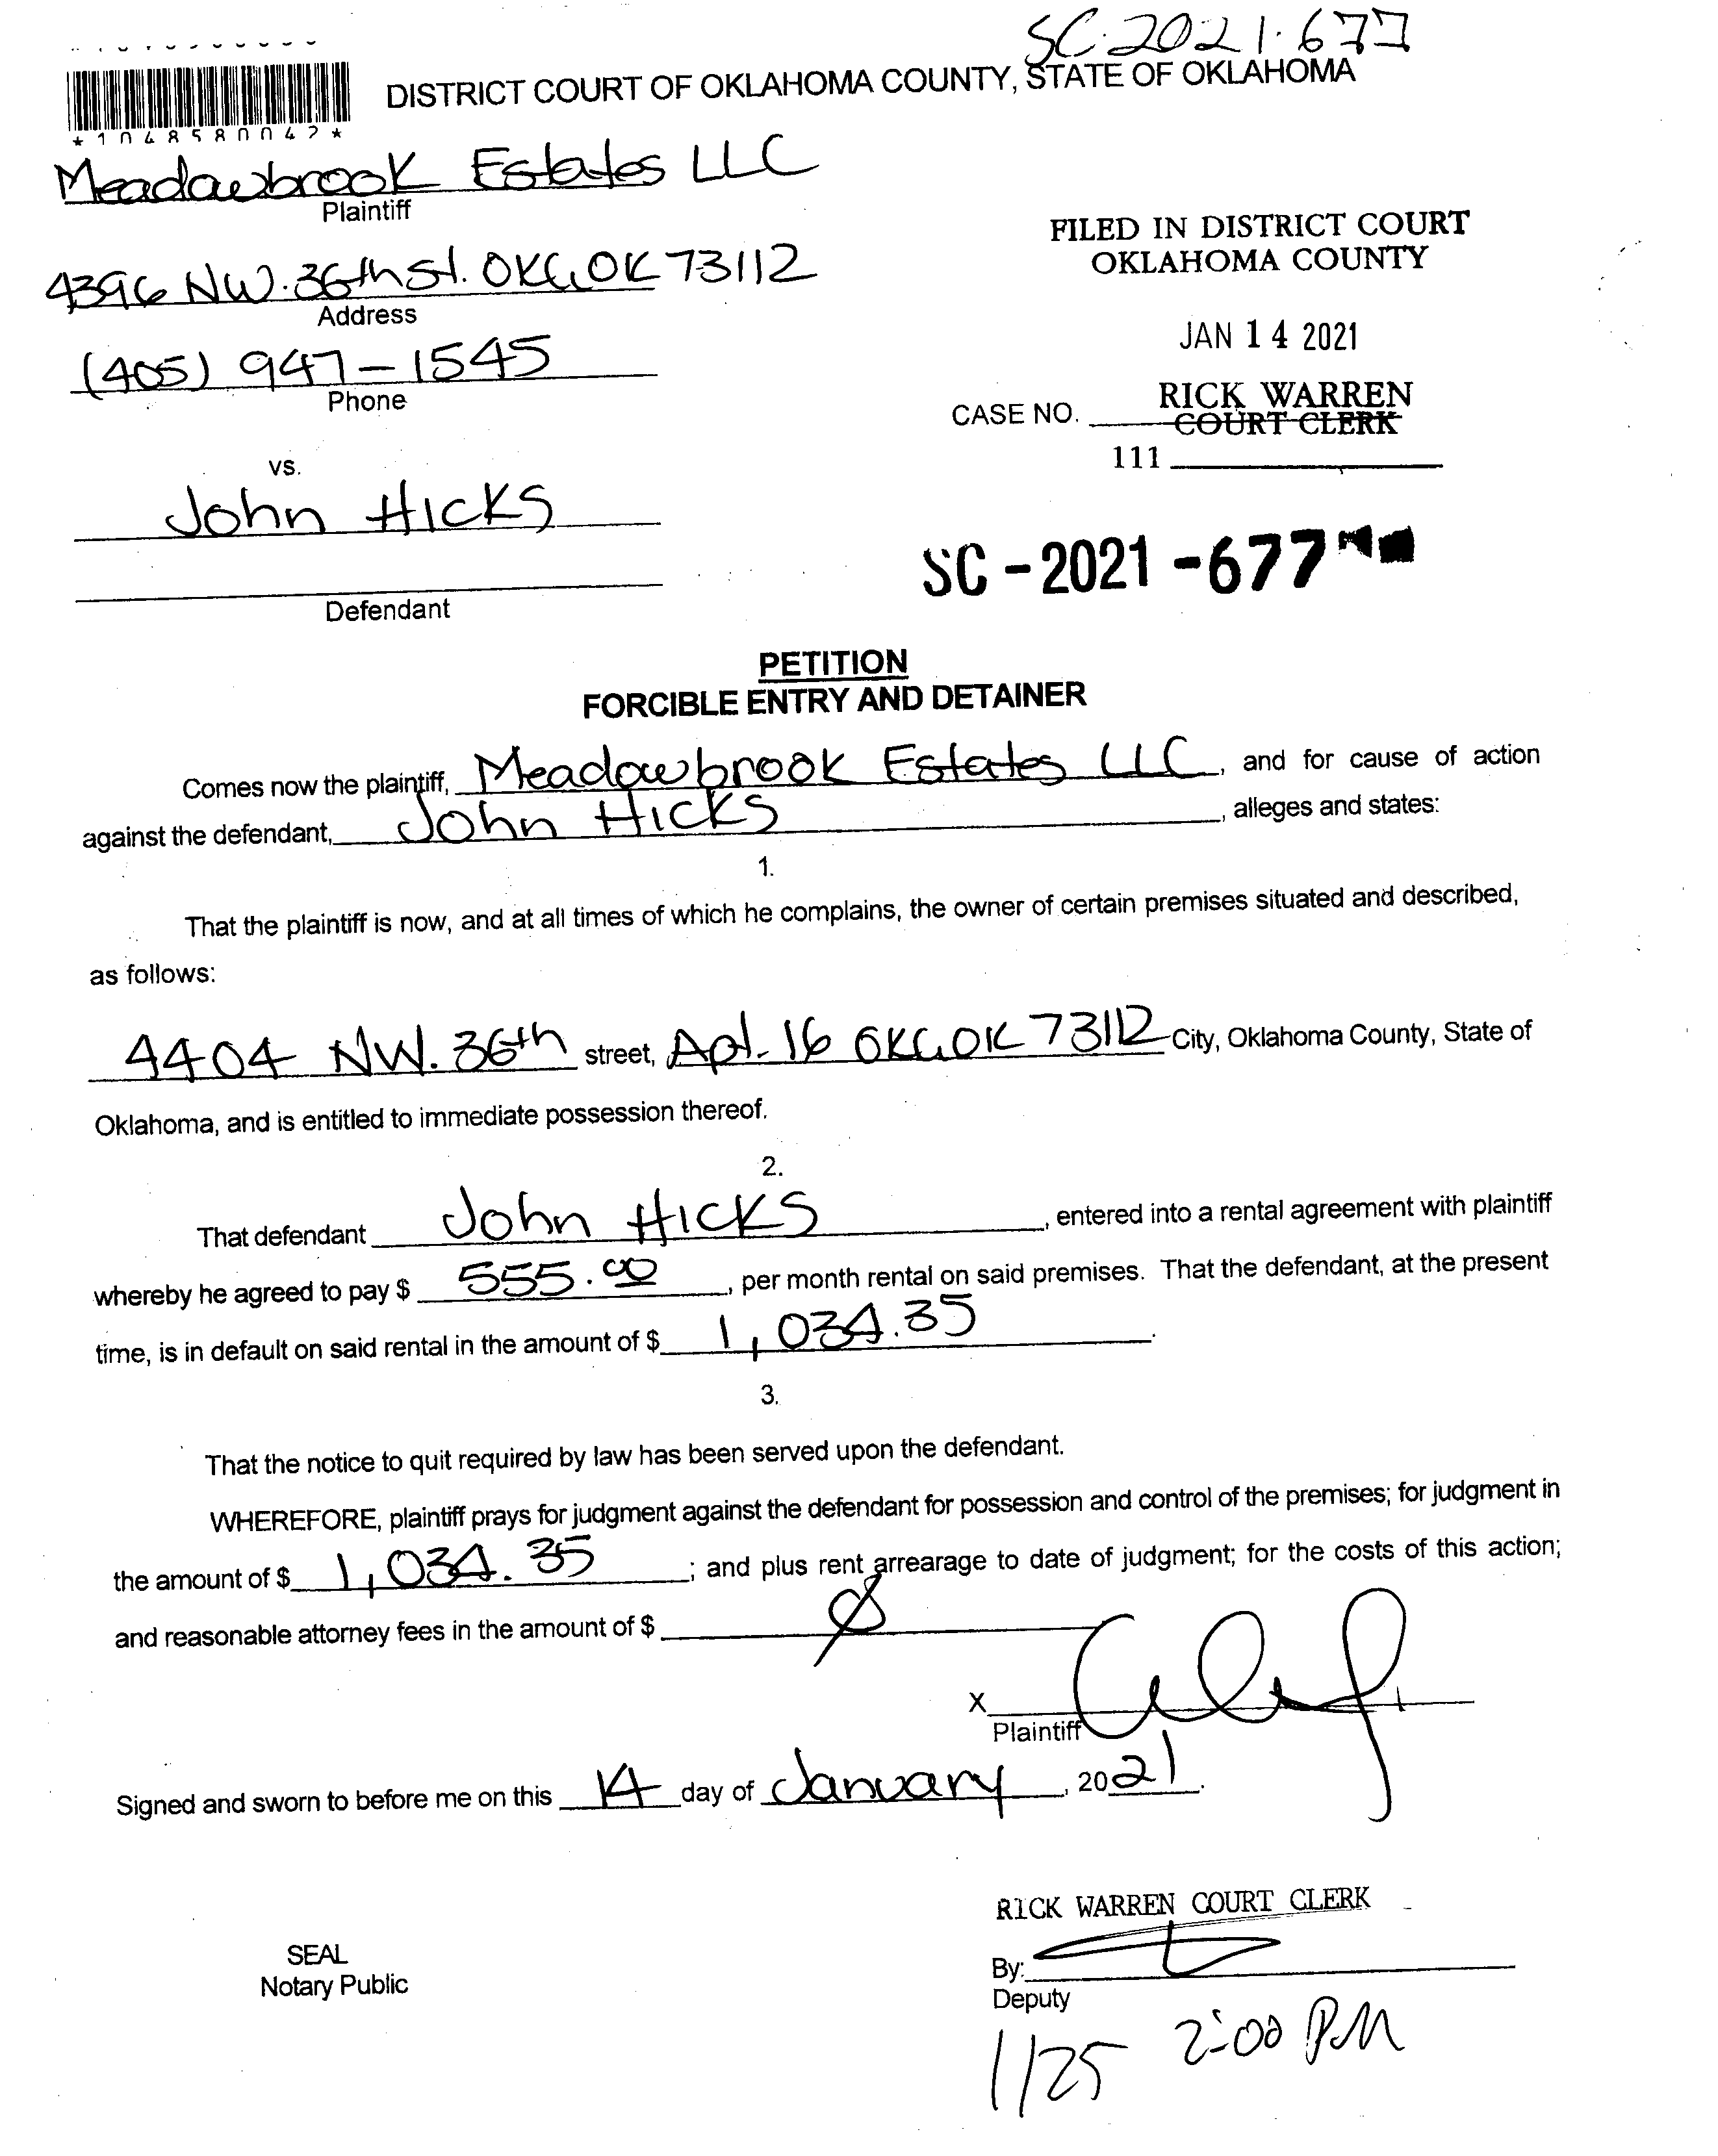 SC-2021-677
DISTRICT COURT OF OKLAHOMA COUNTY, STATE OF OKLAHOMA
*1048580042*
Meadowbrook Estates LLC
Plaintiff
4396 NW. 36th St. OKC, OK 73112
Address
(405) 947-1545
Phone
FILED IN DISTRICT COURT
OKLAHOMA COUNTY
JAN 14 2021
RICK WARREN
CASE NO. COURT CLERK
111
vs.
John Hicks
Defendant
SC-2021-677
PETITION
FORCIBLE ENTRY AND DETAINER
Comes now the plaintiff, Meadowbrook Estates LLC, and for cause of action
against the defendant, John Hicks, alleges and states:
1.
That the plaintiff is now, and at all times of which he complains, the owner of certain premises situated and described,
as follows:
4404 NW. 36th street, Apt. 16 OKC, OK 73112 City, Oklahoma County, State of
Oklahoma, and is entitled to immediate possession thereof.
2.
That defendant John Hicks, entered into a rental agreement with plaintiff
whereby he agreed to pay $ 555.00, per month rental on said premises. That the defendant, at the present
time, is in default on said rental in the amount of $ 1,034.35.
3.
That the notice to quit required by law has been served upon the defendant.
WHEREFORE, plaintiff prays for judgment against the defendant for possession and control of the premises; for judgment in
the amount of $ 1,034.35; and plus rent arrearage to date of judgment; for the costs of this action;
and reasonable attorney fees in the amount of $ Ø
X
Plaintiff
Signed and sworn to before me on this 14 day of January, 2021.
RICK WARREN COURT CLERK
SEAL
Notary Public
By:
Deputy
1/25 2:00 PM